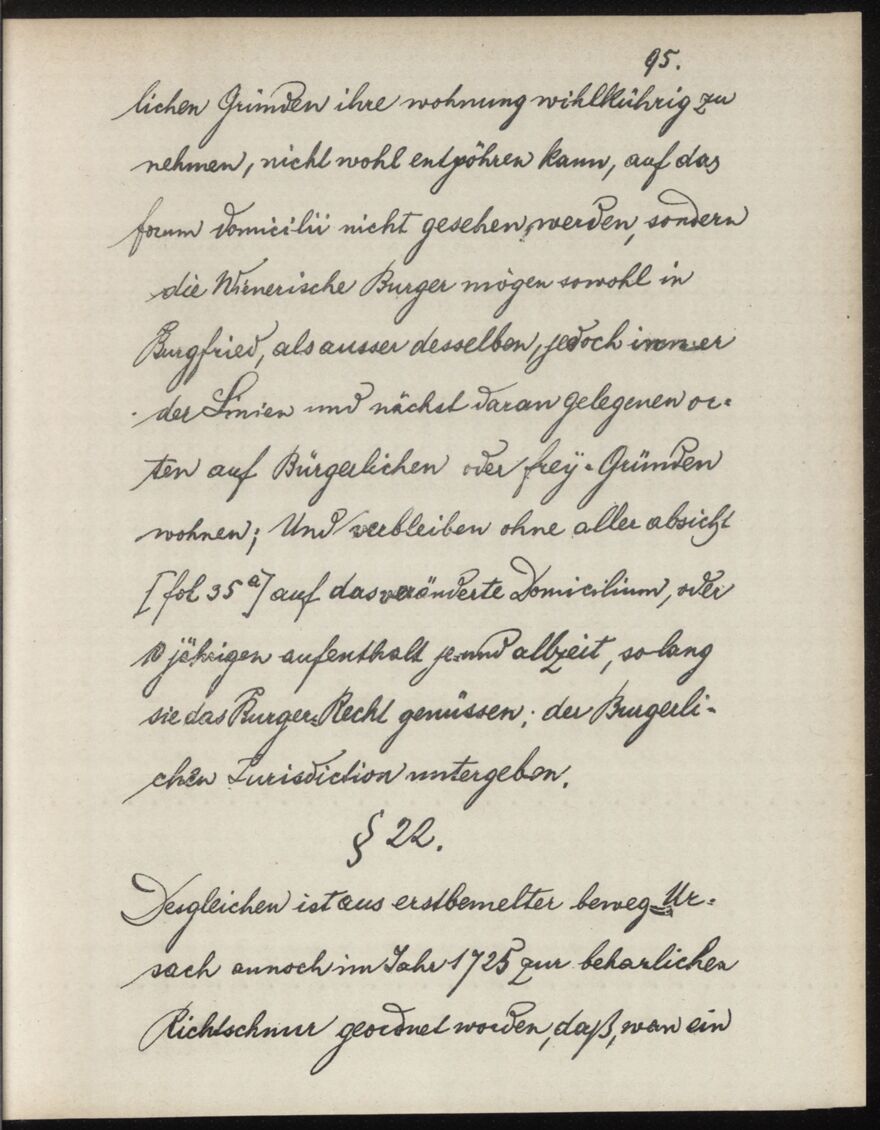 95.
lichen Gründen ihre wohnung wihlkührig zu
nehmen, nicht wohl entpöhren kann, auf das
forum domicilii nicht gesehen werden, sondern
die Wienerische Burger mögen sowohl in
Burgfried, als ausser desselben, jedoch immer
der Linien und nächst daran gelegenen or-
ten auf Bürgerlichen oder frey-Gründen
wohnen; Und verbleiben ohne aller absicht
[fol 35a] auf das veränderte Domicilium, oder
10 jährigen aufenthalt je und allzeit, so lang
sie das Burger-Recht genüssen; der Burgerli-
chen Jurisdiction untergeben.
§ 22.
Desgleichen ist aus erstbemelter beweg-Ur-
sach annoch im Jahr 1725 zur beharlichen
Richtschnur geordnet worden, daß, wan ein